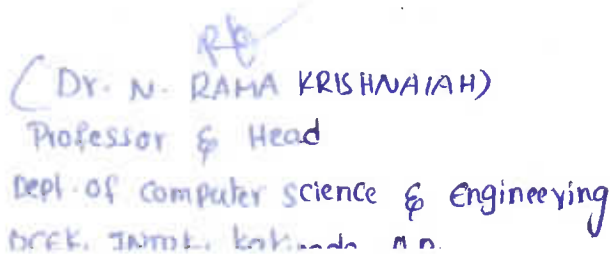 (Dr. N. RAMA KRISHNAIAH)
Professor & Head
Dept. of Computer Science & Engineering